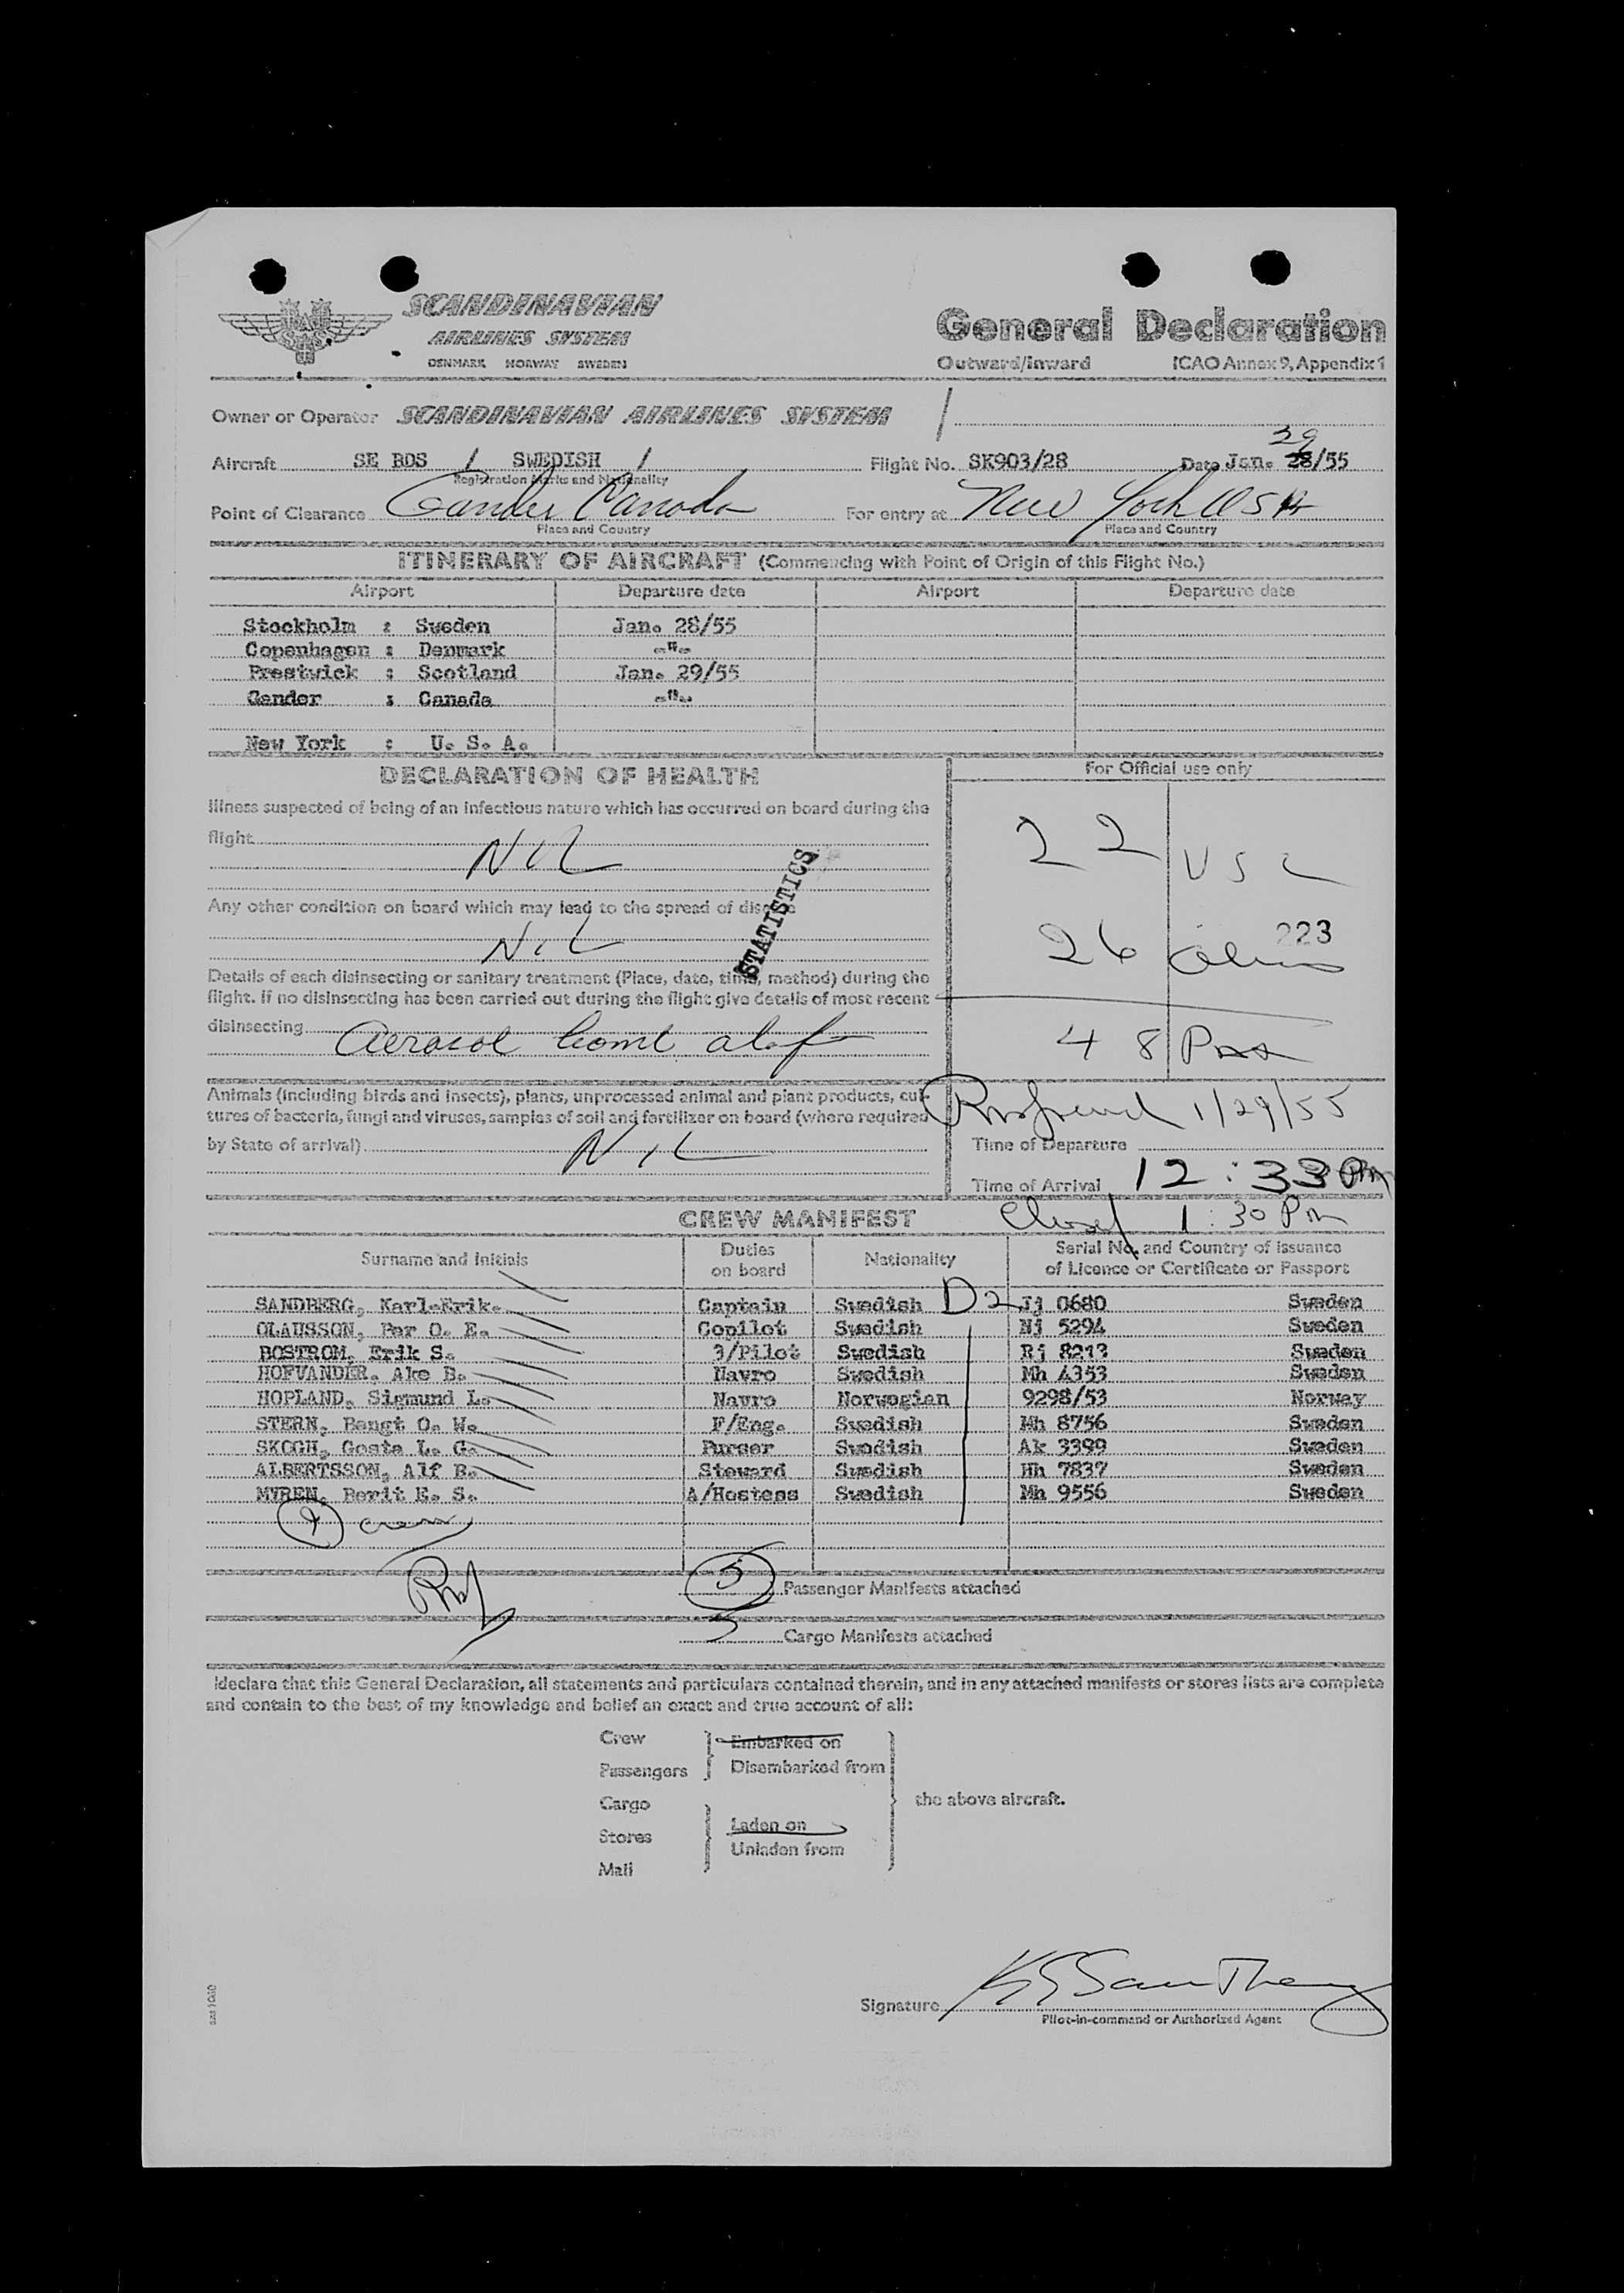 SCANDINAVIAN
AIRLINES SYSTEM
DENMARK NORWAY SWEDEN
General Declaration
Outward/Inward ICAO Annex 9, Appendix 1
Owner or Operator SCANDINAVIAN AIRLINES SYSTEM
29
Aircraft SE BDS / SWEDISH / Flight No. SK903/28 Date Jan. 28/55
Registration Marks and Nationality
Point of Clearance Gander Canada For entry at New York USA
Place and Country Place and Country
ITINERARY OF AIRCRAFT (Commencing with Point of Origin of this Flight No.)
Airport Departure date Airport Departure date
Stockholm : Sweden Jan. 28/55
Copenhagen : Denmark -"-
Prestwick : Scotland Jan. 29/55
Gander : Canada -"-
New York : U. S. A.
DECLARATION OF HEALTH
Illness suspected of being of an infectious nature which has occurred on board during the
flight NIL
Any other condition on board which may lead to the spread of disease
NIL
STATISTICS
Details of each disinsecting or sanitary treatment (Place, date, time, method) during the
flight. If no disinsecting has been carried out during the flight give details of most recent
disinsecting Aerosol bomb
Animals (including birds and insects), plants, unprocessed animal and plant products, cul-
tures of bacteria, fungi and viruses, samples of soil and fertilizer on board (where required
by State of arrival) NIL
For Official use only
22 USC
223
26 Aliens
48 Pax
1/29/55
Time of Departure
Time of Arrival 12:33 PM
Closed 1:30 PM
CREW MANIFEST
Surname and Initials Duties on board Nationality Serial No. and Country of issuance of Licence or Certificate or Passport
SANDBERG, Karl-Erik. Captain Swedish D2 Jj 0680 Sweden
OLAUSSON, Per O. E. Copilot Swedish Nj 5294 Sweden
BOSTROM, Erik S. 3/Pilot Swedish Rj 8213 Sweden
HOFVANDER, Ake B. Navro Swedish Mh 4353 Sweden
HOPLAND, Sigmund L. Navro Norwegian 9298/53 Norway
STERN, Bengt O. W. F/Eng. Swedish Mh 8756 Sweden
SKOGH, Gosta L. G. Purser Swedish Ak 3399 Sweden
ALBERTSSON, Alf B. Steward Swedish Hh 7837 Sweden
MYREN, Berit E. S. A/Hostess Swedish Mh 9556 Sweden
9 crew
5 Passenger Manifests attached
5 Cargo Manifests attached
I declare that this General Declaration, all statements and particulars contained therein, and in any attached manifests or stores lists are complete
and contain to the best of my knowledge and belief an exact and true account of all:
Crew Embarked on
Passengers Disembarked from
Cargo the above aircraft.
Stores Laden on
Unladen from
Mail
Signature
Pilot-in-command or Authorized Agent